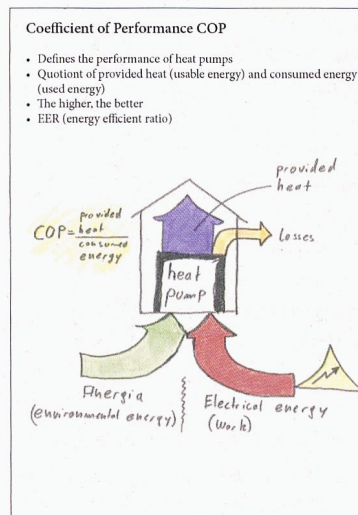 Coefficient of Performance COP
• Defines the performance of heat pumps
• Quotiont of provided heat (usable energy) and consumed energy
(used energy)
• The higher, the better
• EER (energy efficient ratio)
provided
heat
COP = provided
heat
consumed
energy
losses
heat
pump
Anergia
(environmental energy)
Electrical energy
(Work)